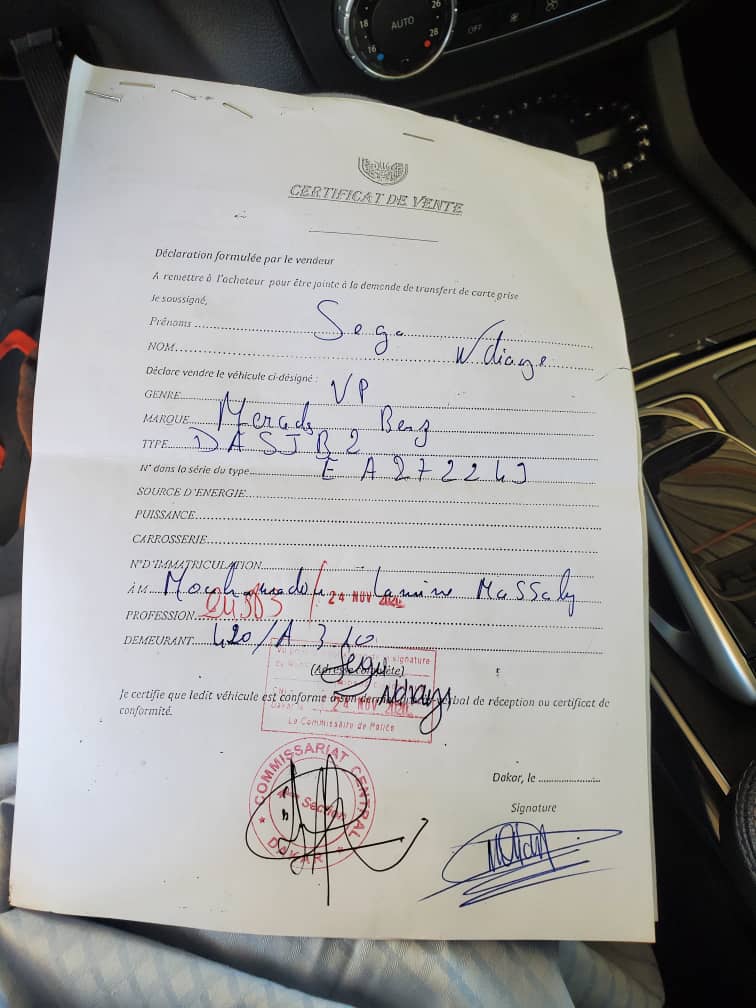 26
18
AUTO
16
28
OFF
CERTIFICAT DE VENTE
Déclaration formulée par le vendeur
A remettre à l'acheteur pour être jointe à la demande de transfert de carte grise
Je soussigné,
Prénoms Sega
NOM Ndiaye
Déclare vendre le véhicule ci-désigné :
GENRE VP
MARQUE Benz
TYPE DA5JB2
N° dans la série du type EA2722
SOURCE D'ENERGIE
PUISSANCE
CARROSSERIE
N°D'IMMATRICULATION
À M Lamine Massaly
24 NOV
PROFESSION
DEMEURANT 420/A
signature
(Adresse complète)
Ndiaye
Je certifie que ledit véhicule est conforme verbal de réception ou certificat de
conformité.
24 NOV
Le Commissaire de Police
COMMISSARIAT CENTRAL
Section
DAKAR
Dakar, le
Signature